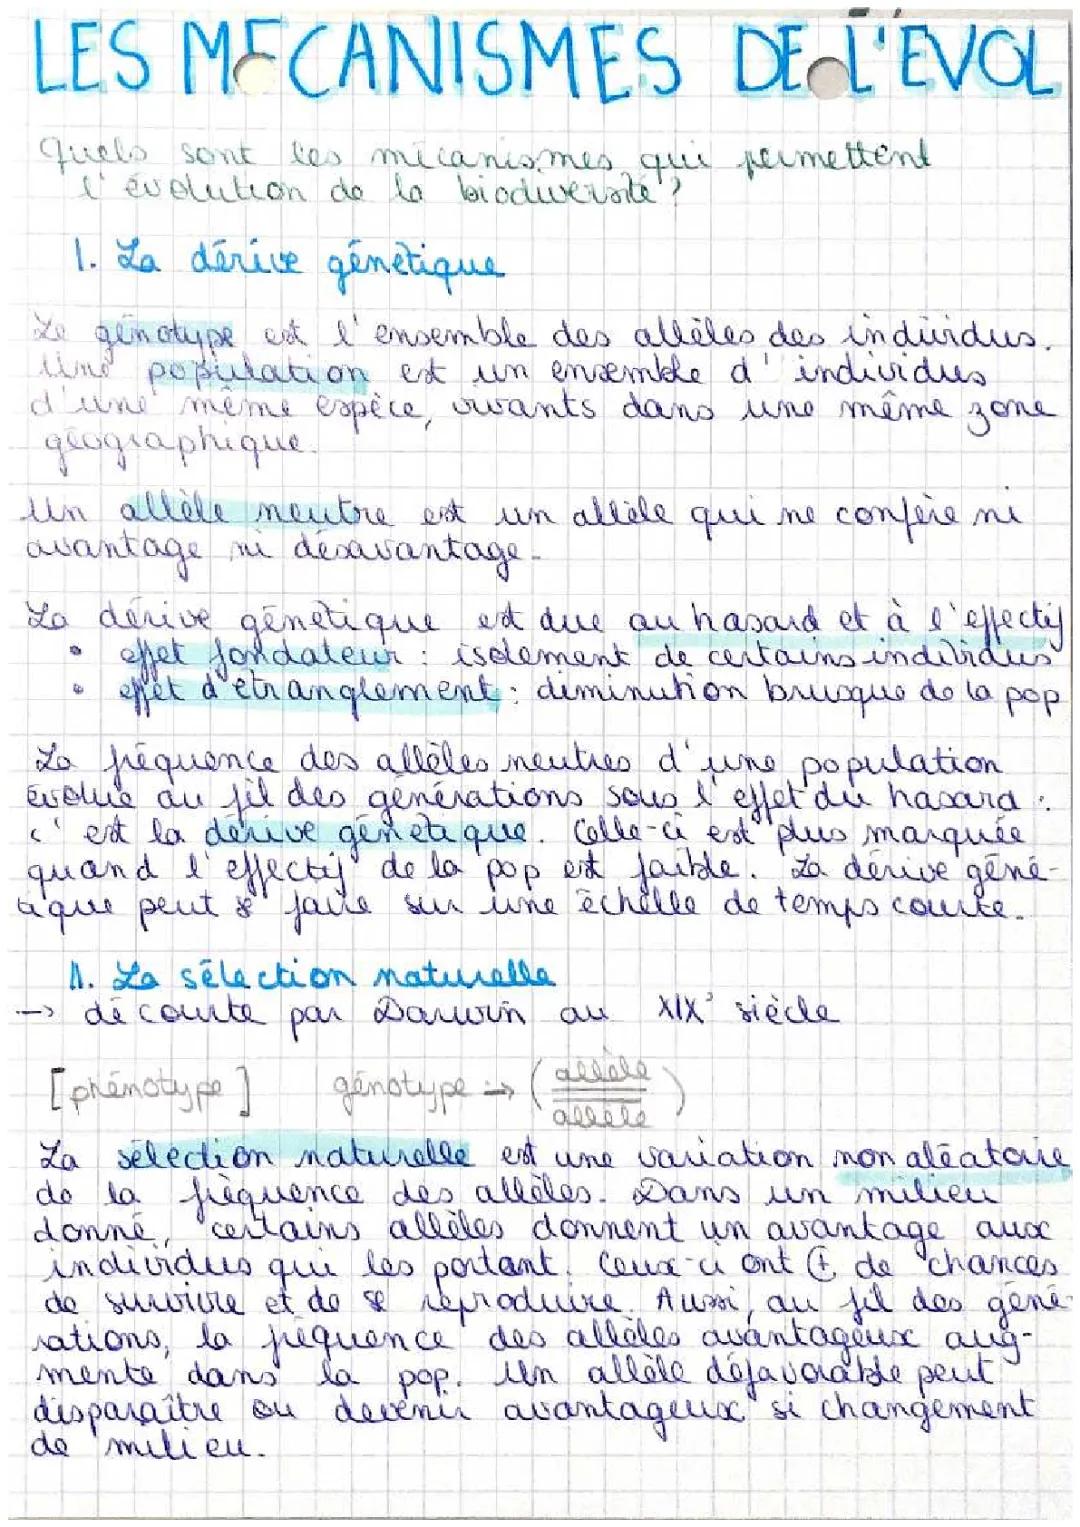 LES MECANISMES DE L'EVOL
Quels sont les mécanismes qui permettent
l'évolution de la biodiversité ?
1. La dérive génétique
Le génotype est l'ensemble des allèles des individus.
Une population est un ensemble d'individus
d'une même espèce, vivants dans une même zone
géographique.
Un allèle neutre est un allèle qui ne confère ni
avantage ni désavantage.
La dérive génétique est due au hasard et à l'effectif
• effet fondateur : isolement de certains individus
• effet d'étranglement : diminution brusque de la pop
La fréquence des allèles neutres d'une population
évolue au fil des générations sous l'effet du hasard :
c'est la dérive génétique. Celle-ci est plus marquée
quand l'effectif de la pop est faible. La dérive géné-
tique peut se faire sur une échelle de temps courte.
II. La sélection naturelle
→ découverte par Darwin au XIXe siècle
[phénotype] génotype → (allèle
allèle)
La sélection naturelle est une variation non aléatoire
de la fréquence des allèles. Dans un milieu
donné, certains allèles donnent un avantage aux
individus qui les portant. Ceux-ci ont ⊕ de chances
de survivre et de se reproduire. Aussi, au fil des géné-
rations, la fréquence des allèles avantageux aug-
mente dans la pop. Un allèle défavorable peut
disparaître ou devenir avantageux si changement
de milieu.